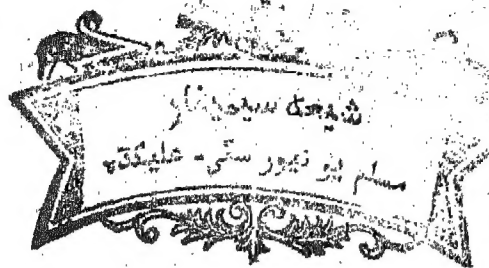 شیعه سیمینار
مسلم یونیورسٹی۔ علیگڈھ